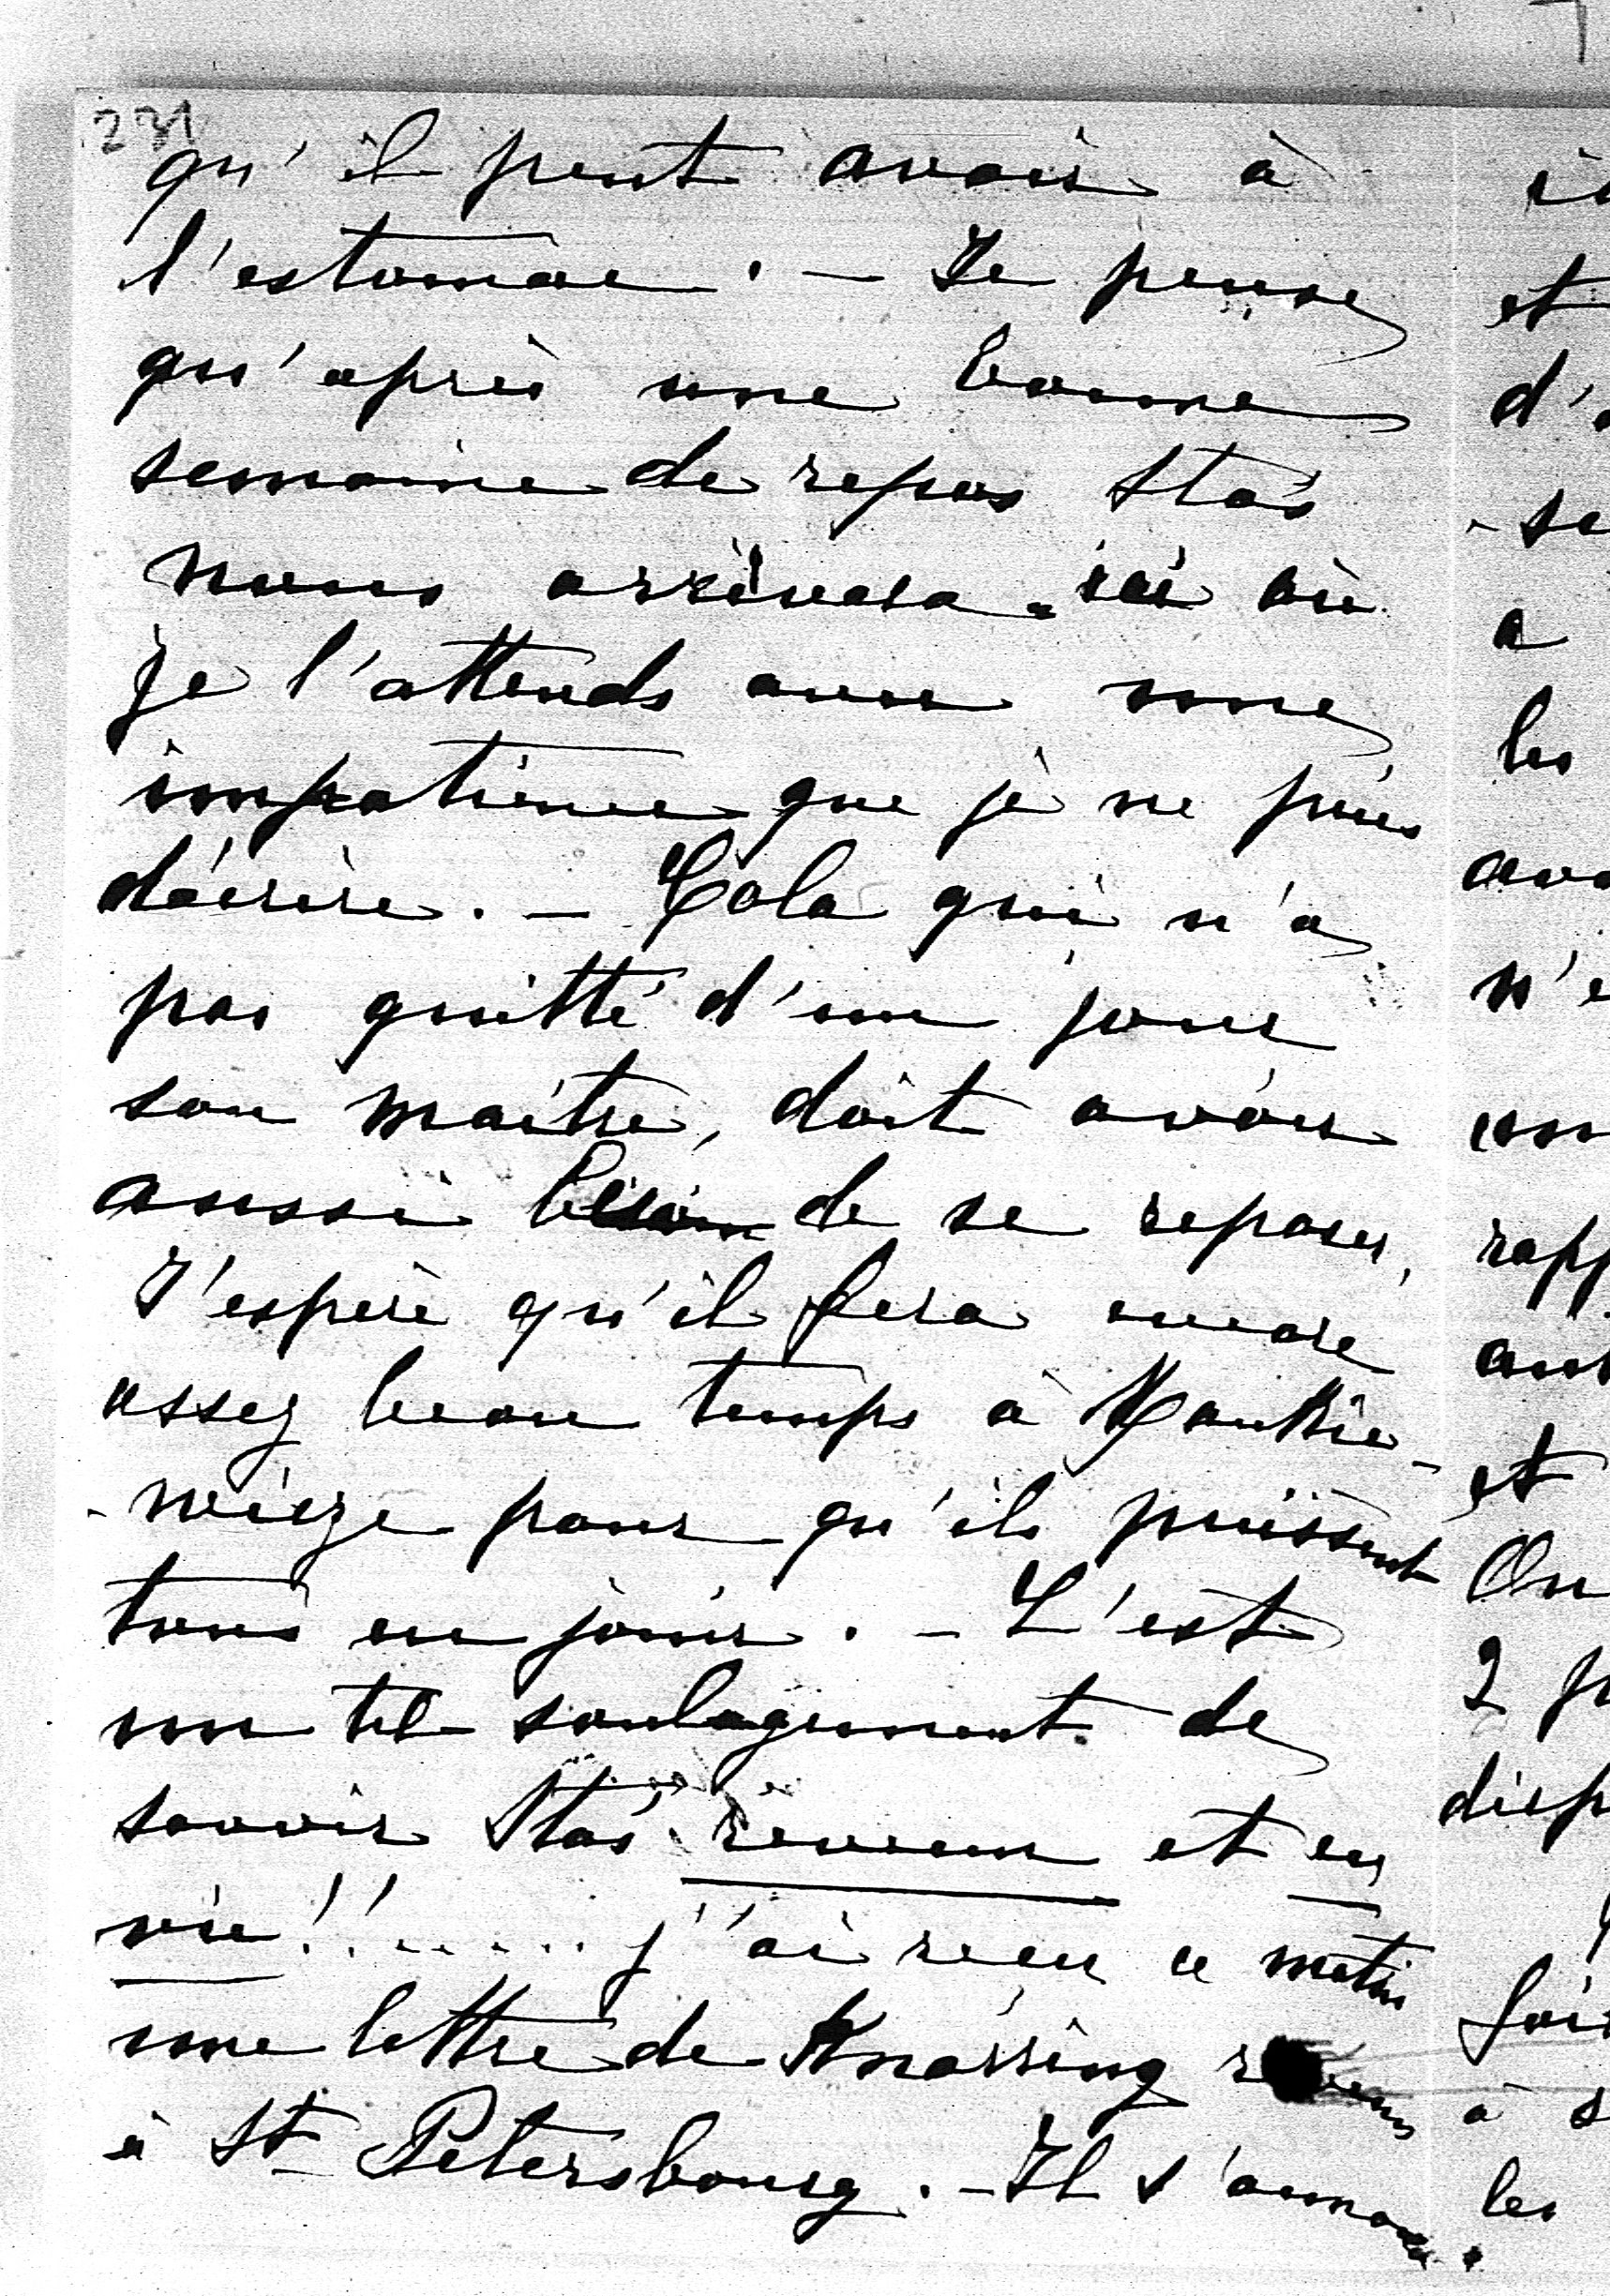 231
qu'il peut avoir à
l'estomac. — Je pense
qu'après une bonne
semaine de repos Stas
nous arrivera ici où
je l'attends avec une
impatience que je ne puis
décrire. — Cola qui n'a
pas quitté d'un jour
son maître, doit avoir
aussi besoin de se reposer,
J'espère qu'il fera encore
assez beau temps à Mankie-
-wicze pour qu'ils puissent
tous en jouir. — C'est
un tel soulagement de
savoir Stas revenu et en
vie!!....... j'ai reçu ce matin
une lettre de Knorring revenu
à St Petersbourg. — Il s'annonce